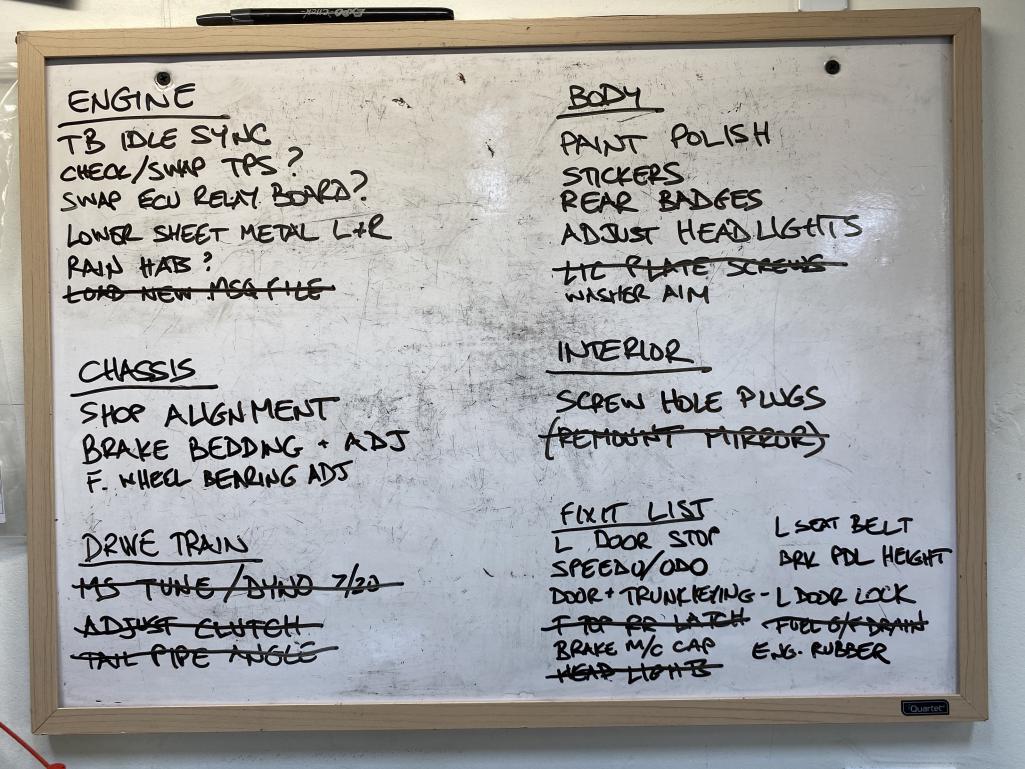 EXPO CLICK
ENGINE
TB IDLE SYNC
CHECK/SWAP TPS?
SWAP ECU RELAY BOARD?
LOWER SHEET METAL L+R
RAIN HAB?
LOAD NEW MSQ FILE
CHASSIS
SHOP ALIGNMENT
BRAKE BEDDING + ADJ
F. WHEEL BEARING ADJ
DRIVE TRAIN
MS TUNE/DYNO 7/20
ADJUST CLUTCH
TAIL PIPE ANGLE
BODY
PAINT POLISH
STICKERS
REAR BADGES
ADJUST HEADLIGHTS
LIC PLATE SCREWS
WASHER AIM
INTERIOR
SCREW HOLE PLUGS
(REMOUNT MIRROR)
FIXIT LIST
L DOOR STOP
SPEEDO/ODO
DOOR + TRUNK KEYING - L DOOR LOCK
T TOP RR LATCH
BRAKE M/C CAP
HEAD LIGHTS
L SEAT BELT
BRK PDL HEIGHT
FUEL O/F DRAIN
ENG. RUBBER
Quartet